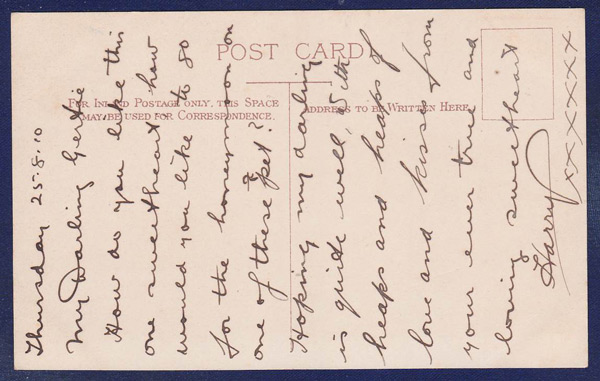 POST CARD
FOR INLAND POSTAGE ONLY, THIS SPACE
MAY BE USED FOR CORRESPONDENCE.
ADDRESS TO BE WRITTEN HERE
Thursday 25-8-10
My Darling Gertie
How do you like this
one sweetheart how
would you like to go
for the honeymoon on
one of these pet?
Hoping my darling
is quite well, With
heaps and heaps of
love and kisses from
your ever true and
loving sweetheart
Harry
xxxxxxx